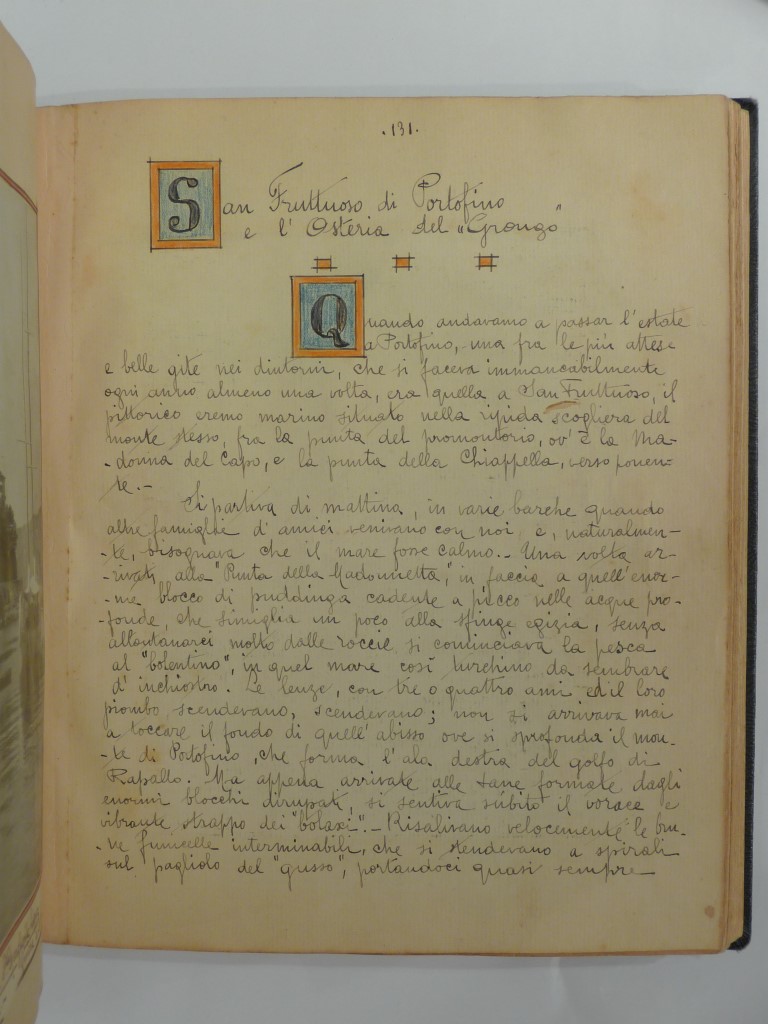 . 131 .
San Fruttuoso di Portofino
e l' Osteria del "Grongo"
Quando andavamo a passar l'estate
a Portofino, una fra le più attese
e belle gite nei dintorni, che si faceva immancabilmente
ogni anno almeno una volta, era quella a San Fruttuoso, il
pittorico eremo marino situato nella ripida scogliera del
monte stesso, fra la punta del promontorio, ov'è la Ma-
-donna del Capo, e la punta della Chiappella, verso ponen-
te. -
Si partiva di mattina, in varie barche quando
altre famiglie d' amici venivano con noi, e, naturalmen-
-te, bisognava che il mare fosse calmo. - Una volta ar-
-rivati alla "Punta della Madonnetta", in faccia a quell'enor-
-me blocco di puddinga cadente a picco nelle acque pro-
-fonde, che simiglia un poco alla sfinge egizia, senza
allontanarci molto dalle roccie, si cominciava la pesca
al "bolentino", in quel mare così turchino da sembrare
d' inchiostro. Le lenze, con tre o quattro ami ed il loro
piombo, scendevano, scendevano; non si arrivava mai
a toccare il fondo di quell' abisso ove si sprofonda il mon-
-te di Portofino, che forma l' ala destra del golfo di
Rapallo. Ma appena arrivate alle tane formate dagli
enormi blocchi dirupati, si sentiva subito il vorace e
vibrante strappo dei "bolaxi". - Risalivano velocemente le bru-
-ne funicelle interminabili, che si stendevano a spirali
sul pagliolo del "gusso", portandoci quasi sempre